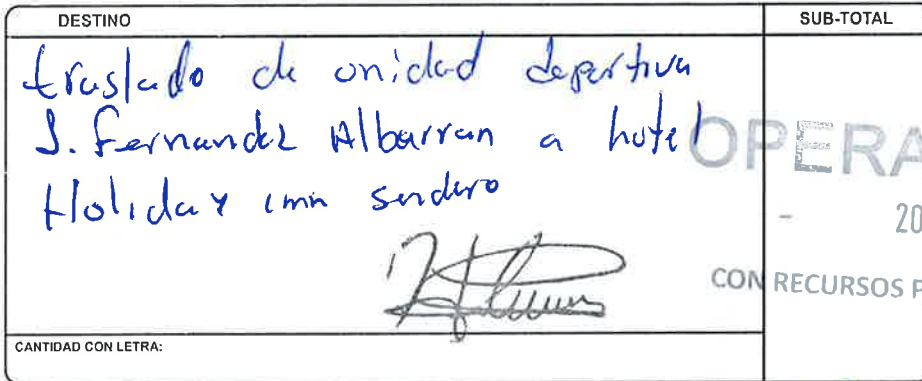 DESTINO
SUB-TOTAL
traslado de unidad deportiva
J. Fernandez Albarran a hotel
Holiday inn sendero
OPERA
- 20
CON RECURSOS P
CANTIDAD CON LETRA: